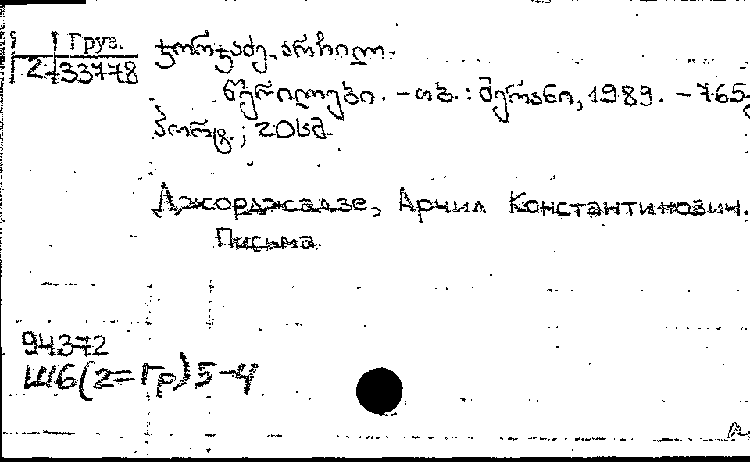 Груз.
2-33778
ჯორჯაძე, არჩილ.
წერილები. - თბ. : მერანი, 1989. - 765
პორტ.; 20სმ.
Джорджадзе, Арчил Константинович.
Письма
94372
Ш6(2=Гр)5-4